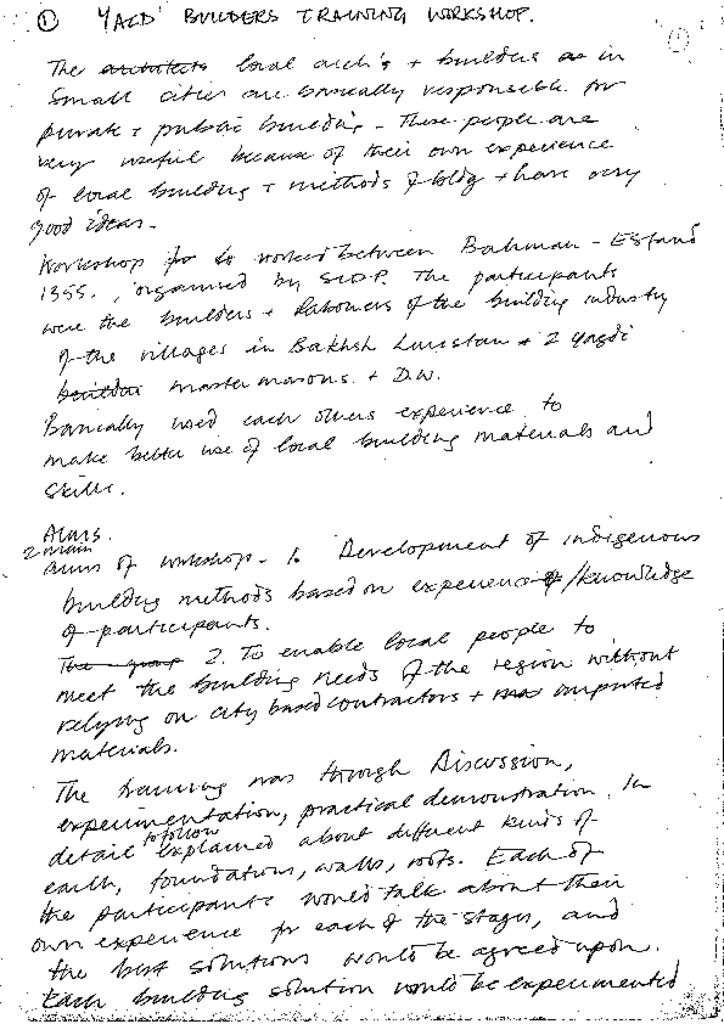 ① 'YALD' BUILDERS TRAINING WORKSHOP.
①
The architects local arch's + builders as in
small cities are basically responsible for
private + public building - These people are
very useful because of their own experience
of local building + methods of bldg + have very
good ideas -
Workshop for to worked between Bahman - Esfand
1355. , organised by SUDP. The participants
were the builders + labourers of the building industry
of the villages in Bakhsh Lurestan + 2 Yazdi
builder master masons. + D.W.
Basically used each others experience to
make better use of local building materials and
skills.
Aims.
2 main
Aims of workshop - 1. Development of indigenous
building methods based on experience /knowledge
of participants.
The group 2. To enable local people to
meet the building needs of the region without
relying on city based contractors + imported
materials.
The training was through Discussion,
experimentation, practical demonstration. In
to follow
detail explained about different kinds of
earth, foundations, walls, roofs. Each of
the participants would talk about their
own experience for each of the stages, and
the best solutions would be agreed upon.
Each building solution would be experimented